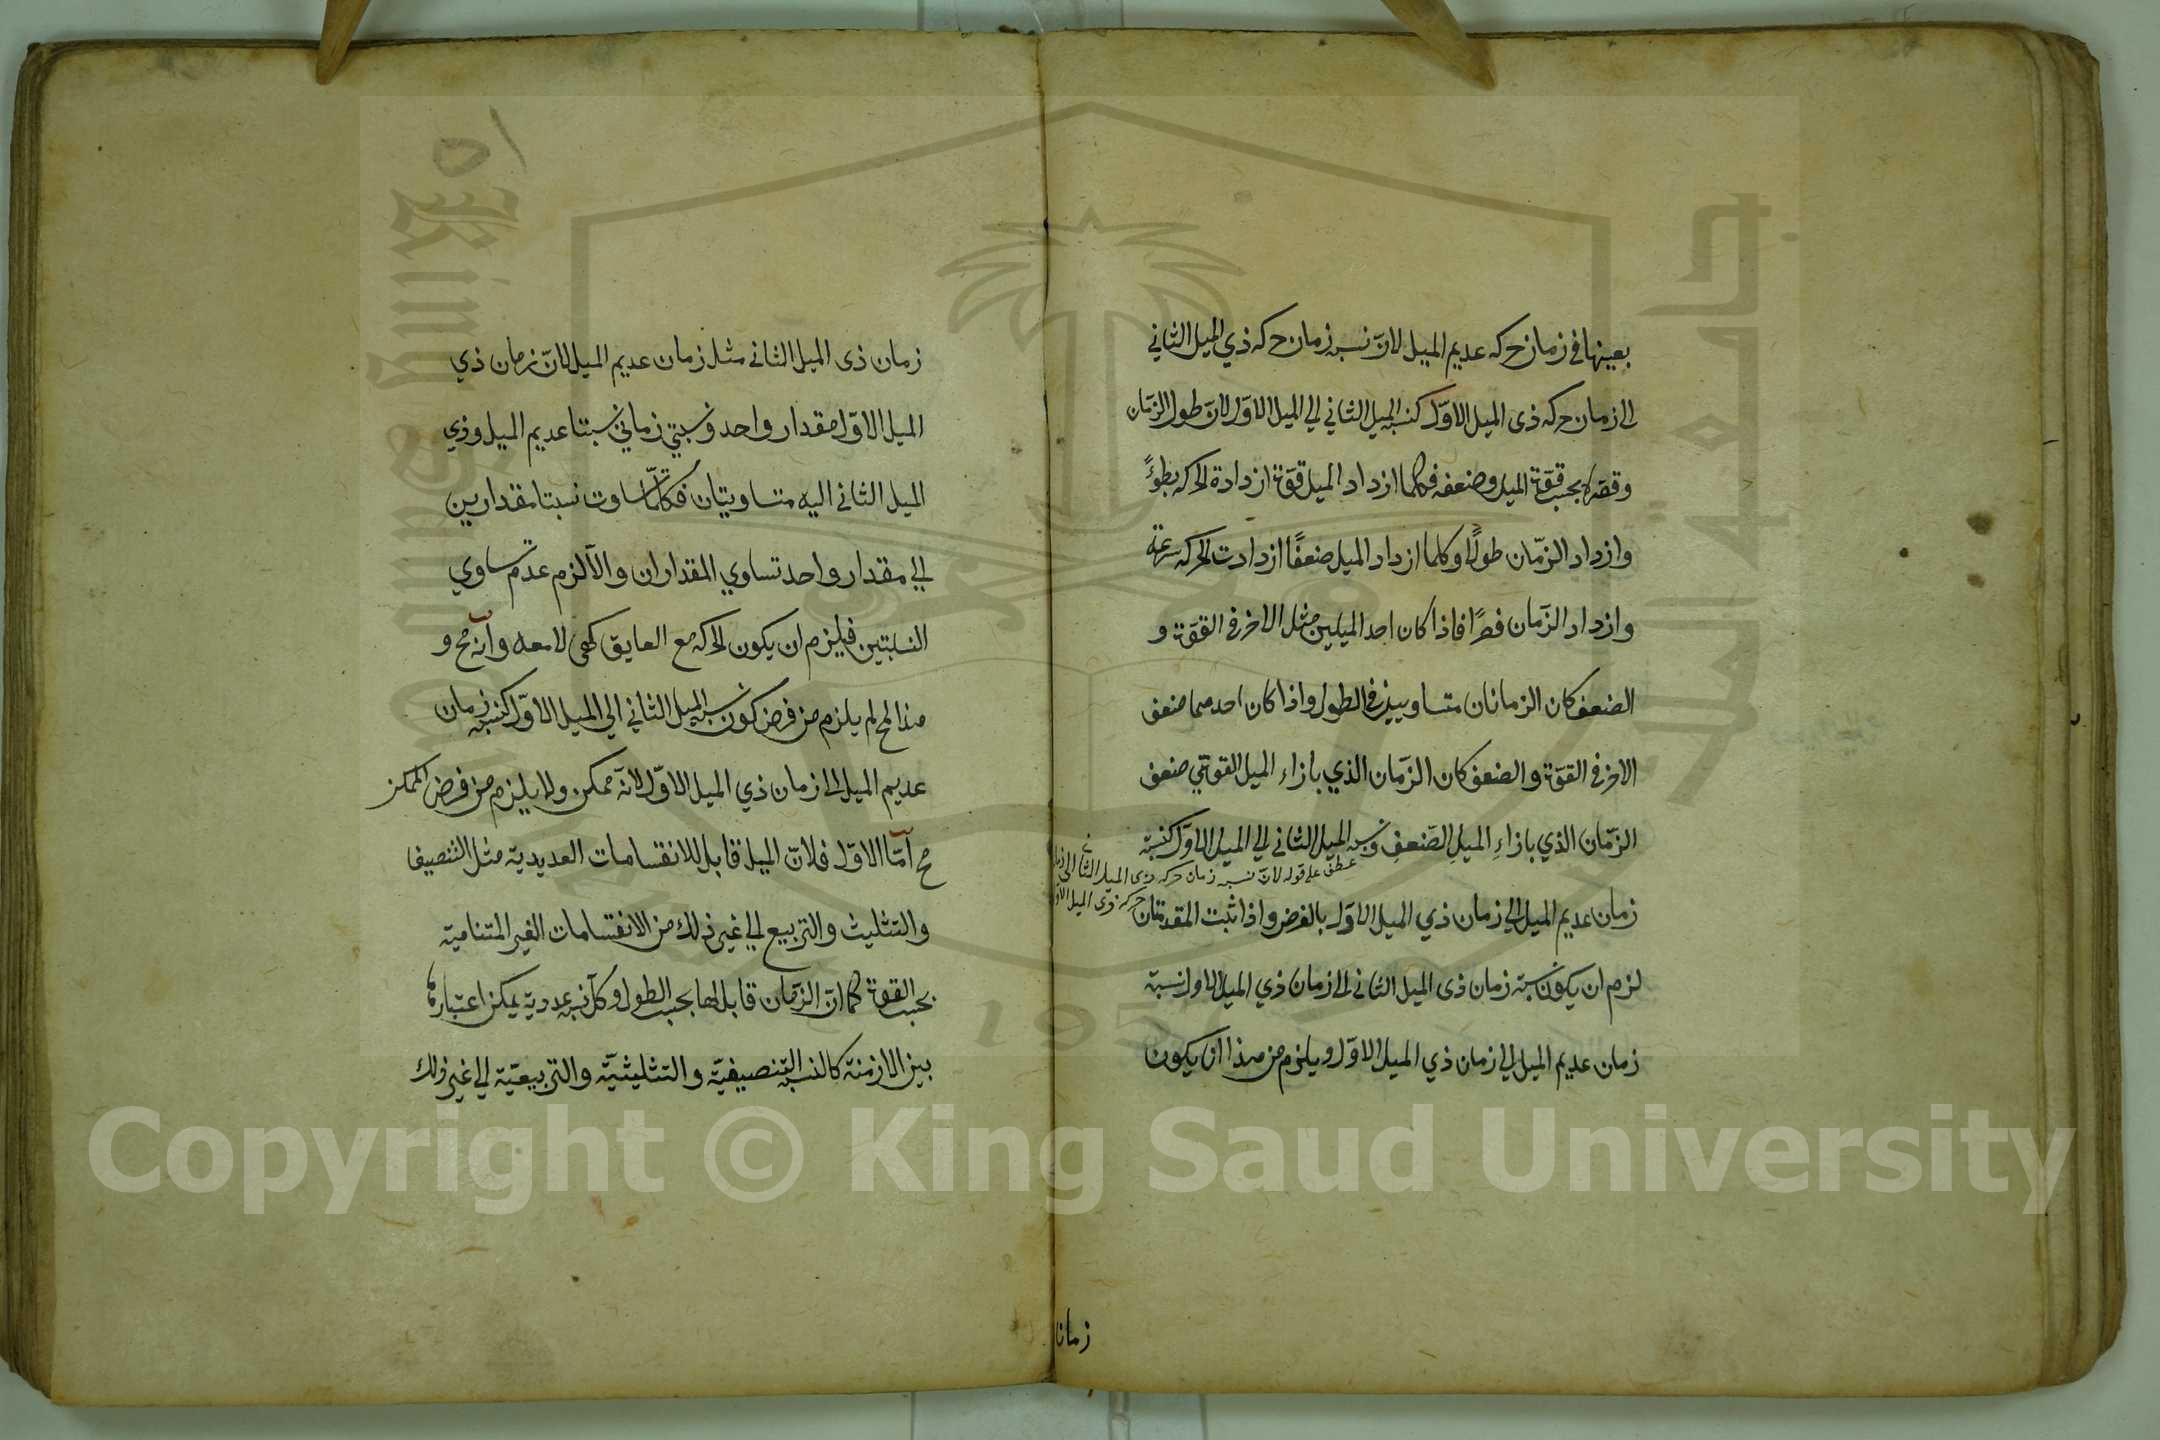 بعينها في زمان حركه عديم الميل لانّ نسبه زمان حركه ذي الميل الثاني
الى زمان حركه ذى الميل الاوّل كنسبه الميل الثاني الي الميل الاوّل لانّ طول الزّمان
وقصره بحسب قوّة الميل وضعفه فكلما ازداد الميل قوّة ازدادة الحركه بطؤً
وازداد الزّمان طولًا وكلما ازداد الميل ضعفًا ازدادت الحركه سرعة
وازداد الزّمان قصرًا فاذا كان احد الميلين مثل الاخر في القوّة و
الضعف كان الزمانان متساويين في الطول واذا كان احدهما ضعف
الاخر في القوّة والضعف كان الزّمان الذي بازاء الميل القوتي ضعف
الزّمان الذي بازاءِ الميلِ الضّعفِ ونسبه الميل الثاني الي الميل الاوّل كنسبة
عطف علي قوله لانّ نسبه زمان حركه ذى الميل الثاني الى زمان
حركه ذى الميل الاول
زمان عديم الميل الي زمان ذي الميل الاوّل بالفرض واذا ثبت المقدمتان
لزم ان يكون نسبة زمان ذى الميل الثاني الى زمان ذي الميل الاول نسبة
زمان عديم الميل الي زمان ذي الميل الاوّل ويلزم من هذا ان يكون
زمان
زمان ذى الميل الثاني مثل زمان عديم الميل لانّ زمان ذي
الميل الاوّل مقدار واحد ونسبتي زماني نسبتا عديم الميل وذي
الميل الثاني اليه متساويتان فكلّما تساوت نسبتا مقدارين
الي مقدار واحد تساوي المقداران والّا لزم عدم تساوي
النسبتين فيلزم ان يكون الحركه مع العايق كهى لا معه وانّه مح و
هذا المح لم يلزم من فرض كون نسبه الميل الثاني الي الميل الاوّل كنسبه زمان
عديم الميل الى زمان ذي الميل الاوّل لانّه ممكن ولا يلزم من فرض الممكن
مح امّا الاوّل فلانّ الميل قابل للانقسامات العديديّة مثل التنصيف
والتثليث والتربيع الي غير ذلك من الانقسامات الغير المتناهية
بحسب القوة كما انّ الزّمان قابل لها بحسب الطول وكلّ نسبه عدديه يمكن اعتبارها
بين الازمنة كالنسبه التنصيفيّة والتثليثيّة والتربيعيّة الي غير ذلك
Copyright © King Saud University